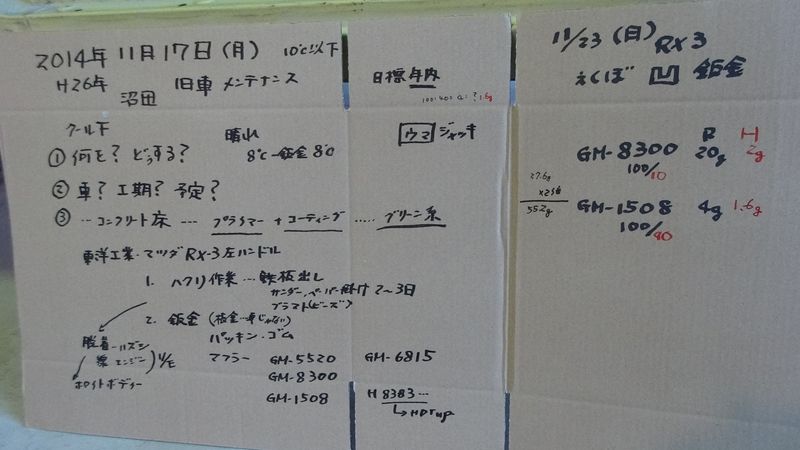 2014年 11月17日(月) 10℃以下
H26年 旧車 メンテナンス
沼田
目標 年内
100:40=a:?1.6g
クール下 晴れ
8℃–鈑金 8℃
ウマ ジャッキ
① 何を? どうする?
② 車? 工期? 予定?
③ … コンクリート床 --- プライマー + コーティング ..... グリーン系
東洋工業・マツダ RX-3 左ハンドル
1. ハクリ作業 … 鉄板出し
サンダー、ペーパー掛け 2〜3日
ブラスト(ビーズ)
2. 鈑金 (板金…車じゃない)
脱着–ハズシ
エンジン
ホワイトボディー
パッキン・ゴム
マフラー GM-5520 GM-6815
GM-8300
GM-1508
H 8383…
↳HDrup
11/23 (日) RX3
えくぼ 凹 鈑金
R H
GM-8300 20g 2g
100/10
27.6g
x2倍
55.2g
GM-1508 4g 1.6g
100/40